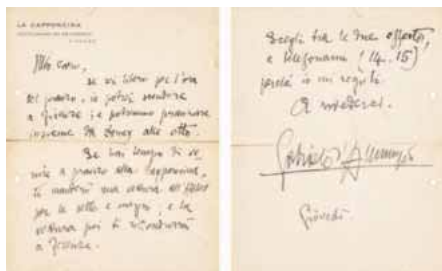 LA CAPPONCINA
SETTIGNANO DI DESIDERIO
FIRENZE
Mio caro,
se sei libero per l'ora
del pranzo, io potrei venire
a Firenze e potremmo pranzare
insieme da Doney alle otto.
Se hai tempo di ve-
nire a pranzo alla Capponcina,
ti manderò una vettura
per le sette e mezzo, e la
vettura poi ti ricondurrà
a Firenze.
Scegli tra le due offerte,
e telefonami (14.15)
perché io mi regoli.
A rivederci.
Gabriele d'Annunzio
Giovedì.